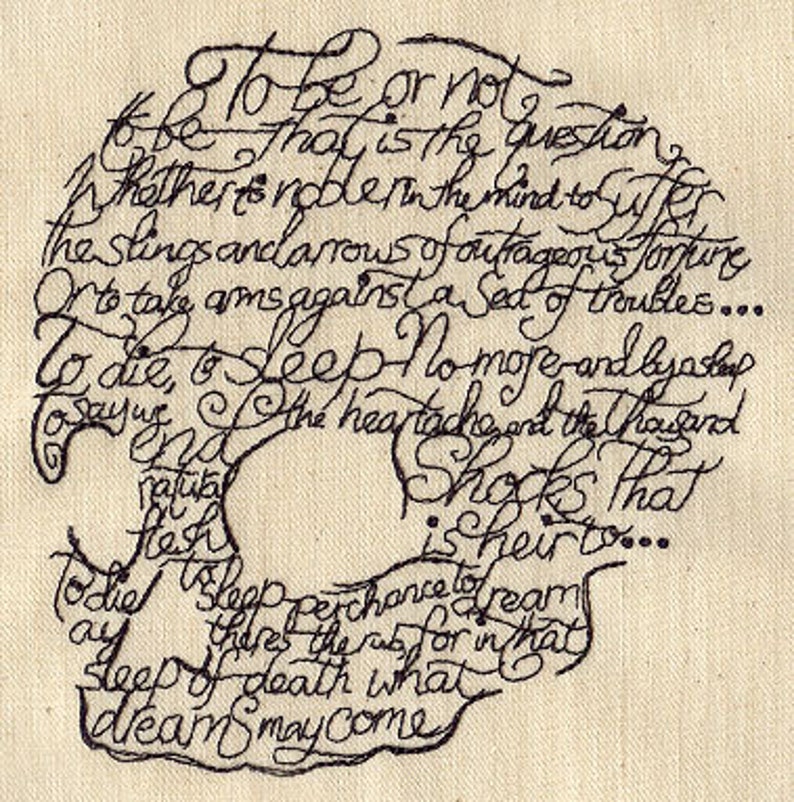 To be or not
to be That is the question,
Whether tis nobler in the mind to Suffer
The slings and arrows of outrageous fortune
Or to take arms against a Sea of troubles...
To die, to sleep No more and by a sleep
To say we end the heartache and the Thousand
natural Shocks That
flesh is heir to...
To die to sleep perchance to dream
ay theres the rub, for in that
sleep of death what
dreams may come